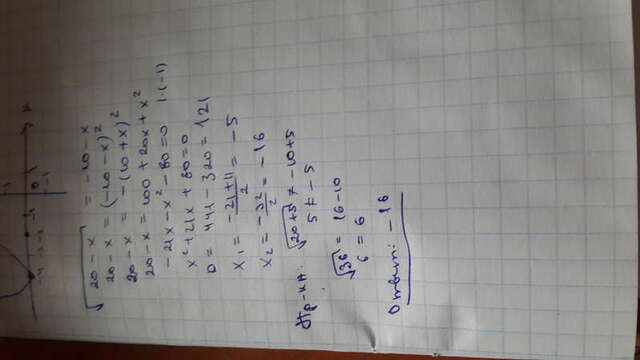 √20 - x = -10 - x
20 - x = (-10 - x)²
20 - x = -(10 + x)²
20 - x = 100 + 20x + x²
-21x - x² - 80 = 0 | · (-1)
x² + 21x + 80 = 0
D = 441 - 320 = 121
x₁ = -21 + 11 / 2 = -5
x₂ = -32 / 2 = -16
Пр-ка: √20+5 ≠ -10+5
5 ≠ -5
√36 = 16 - 10
6 = 6
Ответ: -16